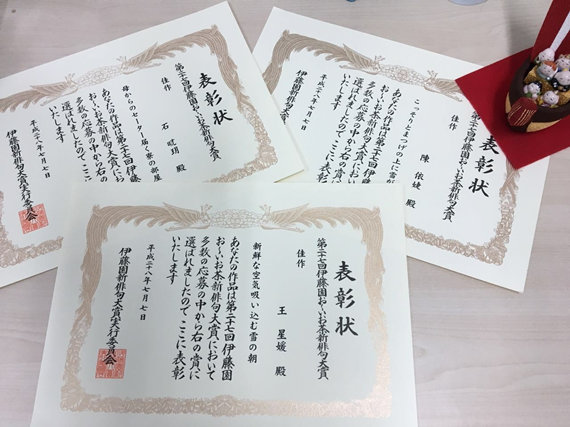 表彰状
第二十七回伊藤園おーいお茶新俳句大賞
佳作
石 㫤玥 殿
母からのセーター届く寮の部屋
あなたの作品は第二十七回伊藤園
おーいお茶新俳句大賞において
多数の応募の中から右の賞に
選ばれましたのでここに表彰
いたします
平成二十八年七月七日
伊藤園新俳句大賞実行委員会
表彰状
第二十七回伊藤園おーいお茶新俳句大賞
佳作
陳 依婕 殿
こっそりとまつげの上に雪が
あなたの作品は第二十七回伊藤園
おーいお茶新俳句大賞において
多数の応募の中から右の賞に
選ばれましたのでここに表彰
いたします
平成二十八年七月七日
伊藤園新俳句大賞実行
表彰状
第二十七回伊藤園おーいお茶新俳句大賞
佳作
王 星媛 殿
新鮮な空気吸い込む雪の朝
あなたの作品は第二十七回伊藤園
おーいお茶新俳句大賞において
多数の応募の中から右の賞に
選ばれましたのでここに表彰
いたします
平成二十八年七月七日
伊藤園新俳句大賞実行委員会